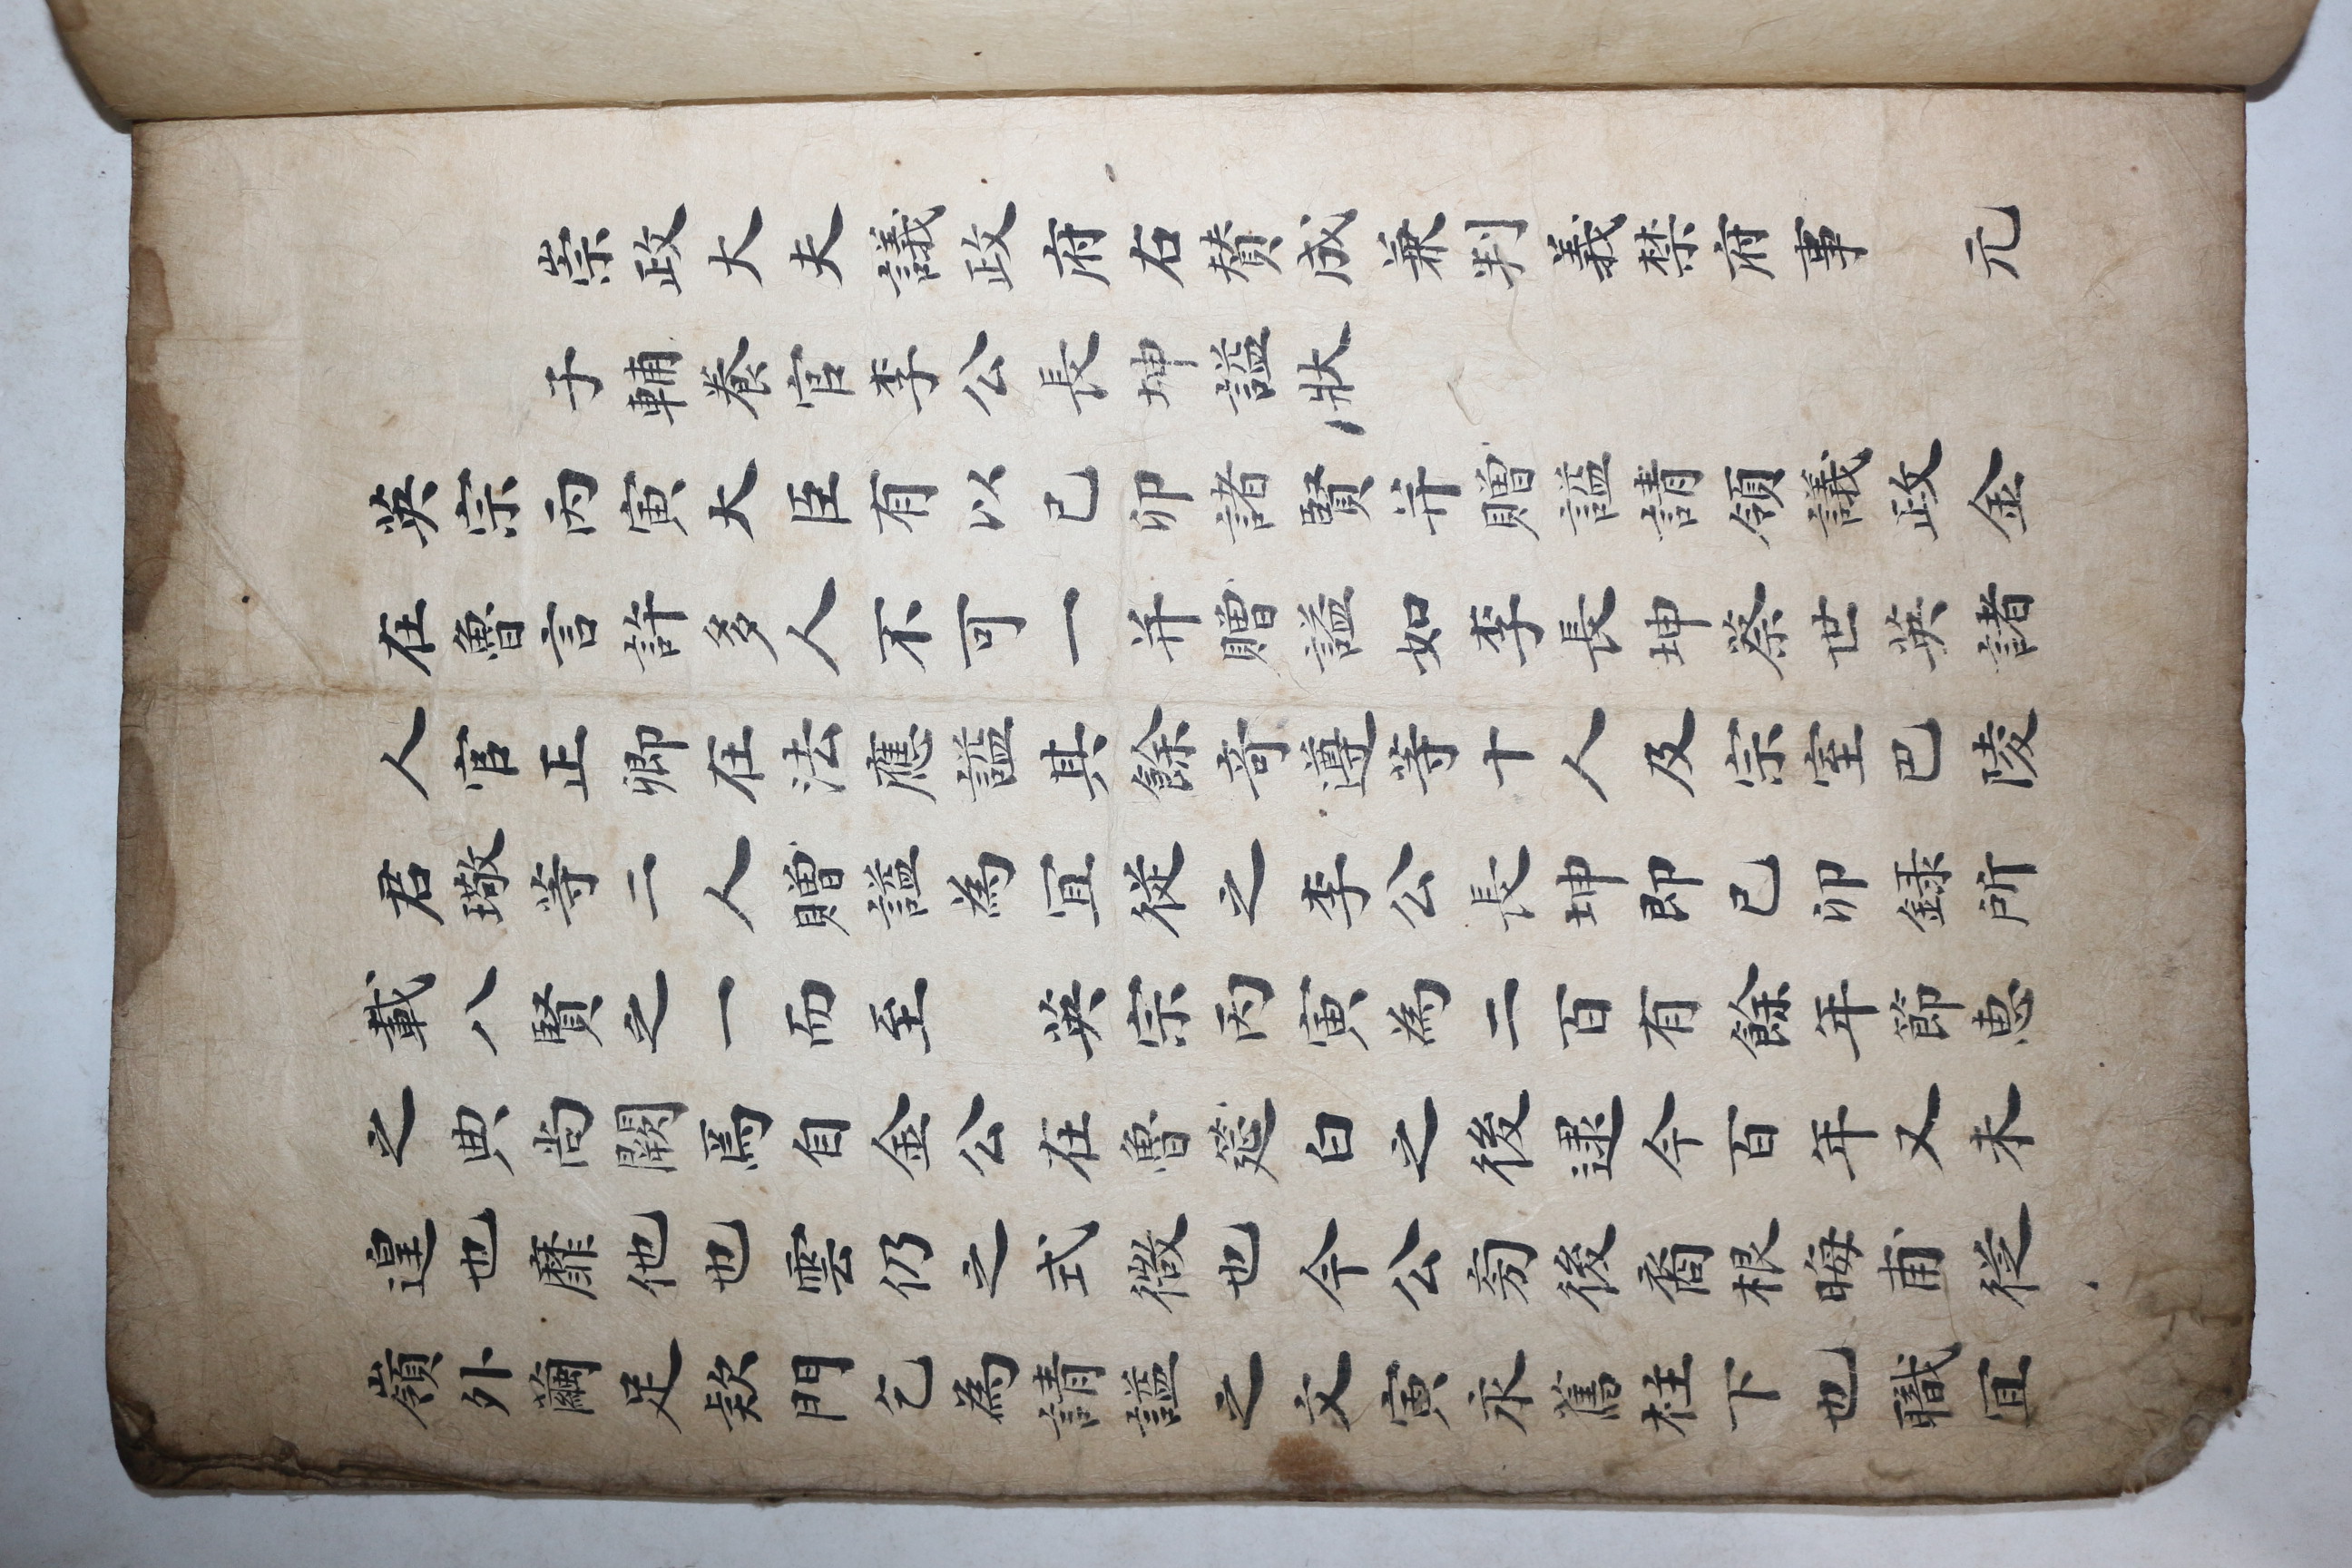 崇政大夫議政府右賛成兼判義禁府事 元
子輔養官李公長坤諡狀
英宗丙寅大臣有以己卯諸賢并贈諡請領議政金
在魯言許多人不可一并贈諡如李長坤蔡世英諸
人官正卿在法應諡其餘奇遵等十人及宗室巴陵
君璥等二人贈諡為宜從之李公長坤即己卯録所
載八賢之一而至 英宗丙寅為二百有餘年節惠
之典尚闕焉自金公在魯筵白之後逮今百年又未
遑也靡他也雲仍之式微也今公旁後裔根晦甫從
嶺外繭足欵門乞為請諡之文寅永舊柱下也職宜